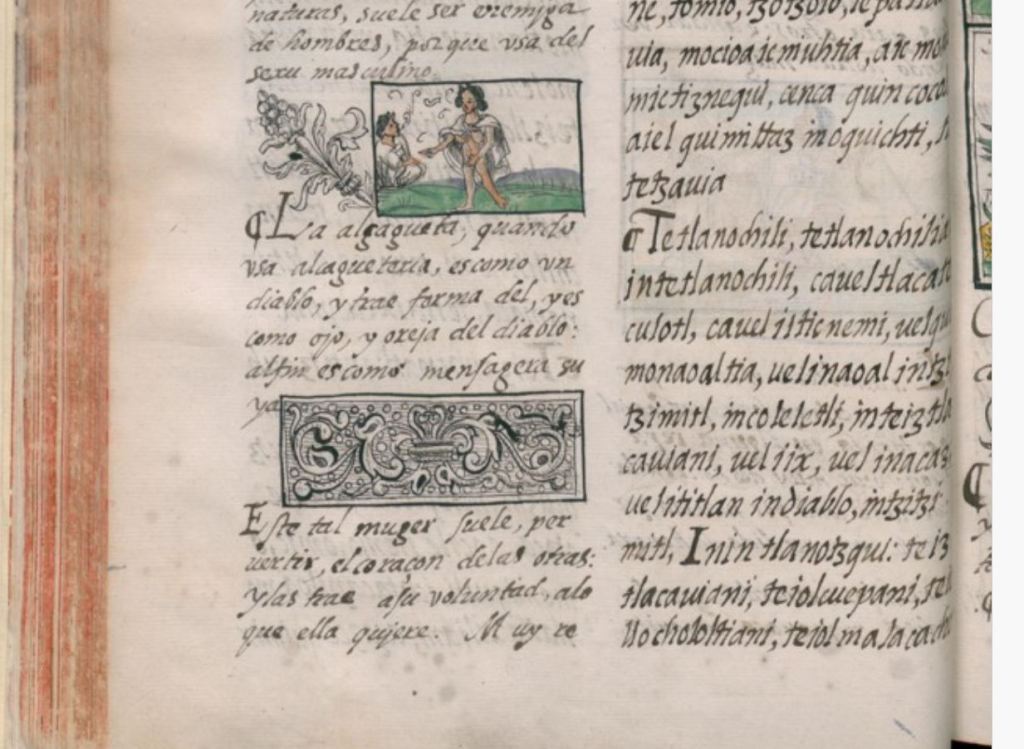 naturas, suele ser enemiga
de hombres, porque vsa del
sexu masculino.
¶ La alcagueta, quando
vsa alcagueteria, es como vn
diablo, y trae forma del, y es
como ojo, y oreja del diablo:
alfin es como mensagera su
ya
Este tal muger suele, per
uertir, el coraçon delas otras:
ylas trae asu voluntad, alo
que ella quiere. Muy re
uia, mocioaicmuhtia,
mictiznequi, cenca
aiel quimittaz moquichti,
tetzauia
¶ Tetlanochili, tetlanochilia
intetlanochili, caveltlaca
culotl, cauel isticnemi,
monaoaltia, uelinaoal
tzimitl, incoleletli,
cauiani, uel iix, uel
uelititlan indiablo, intzitzi
mitl, Inin tlanotzqui: teiz
tlacauiani, teiolcuepani,
llochololtiani,